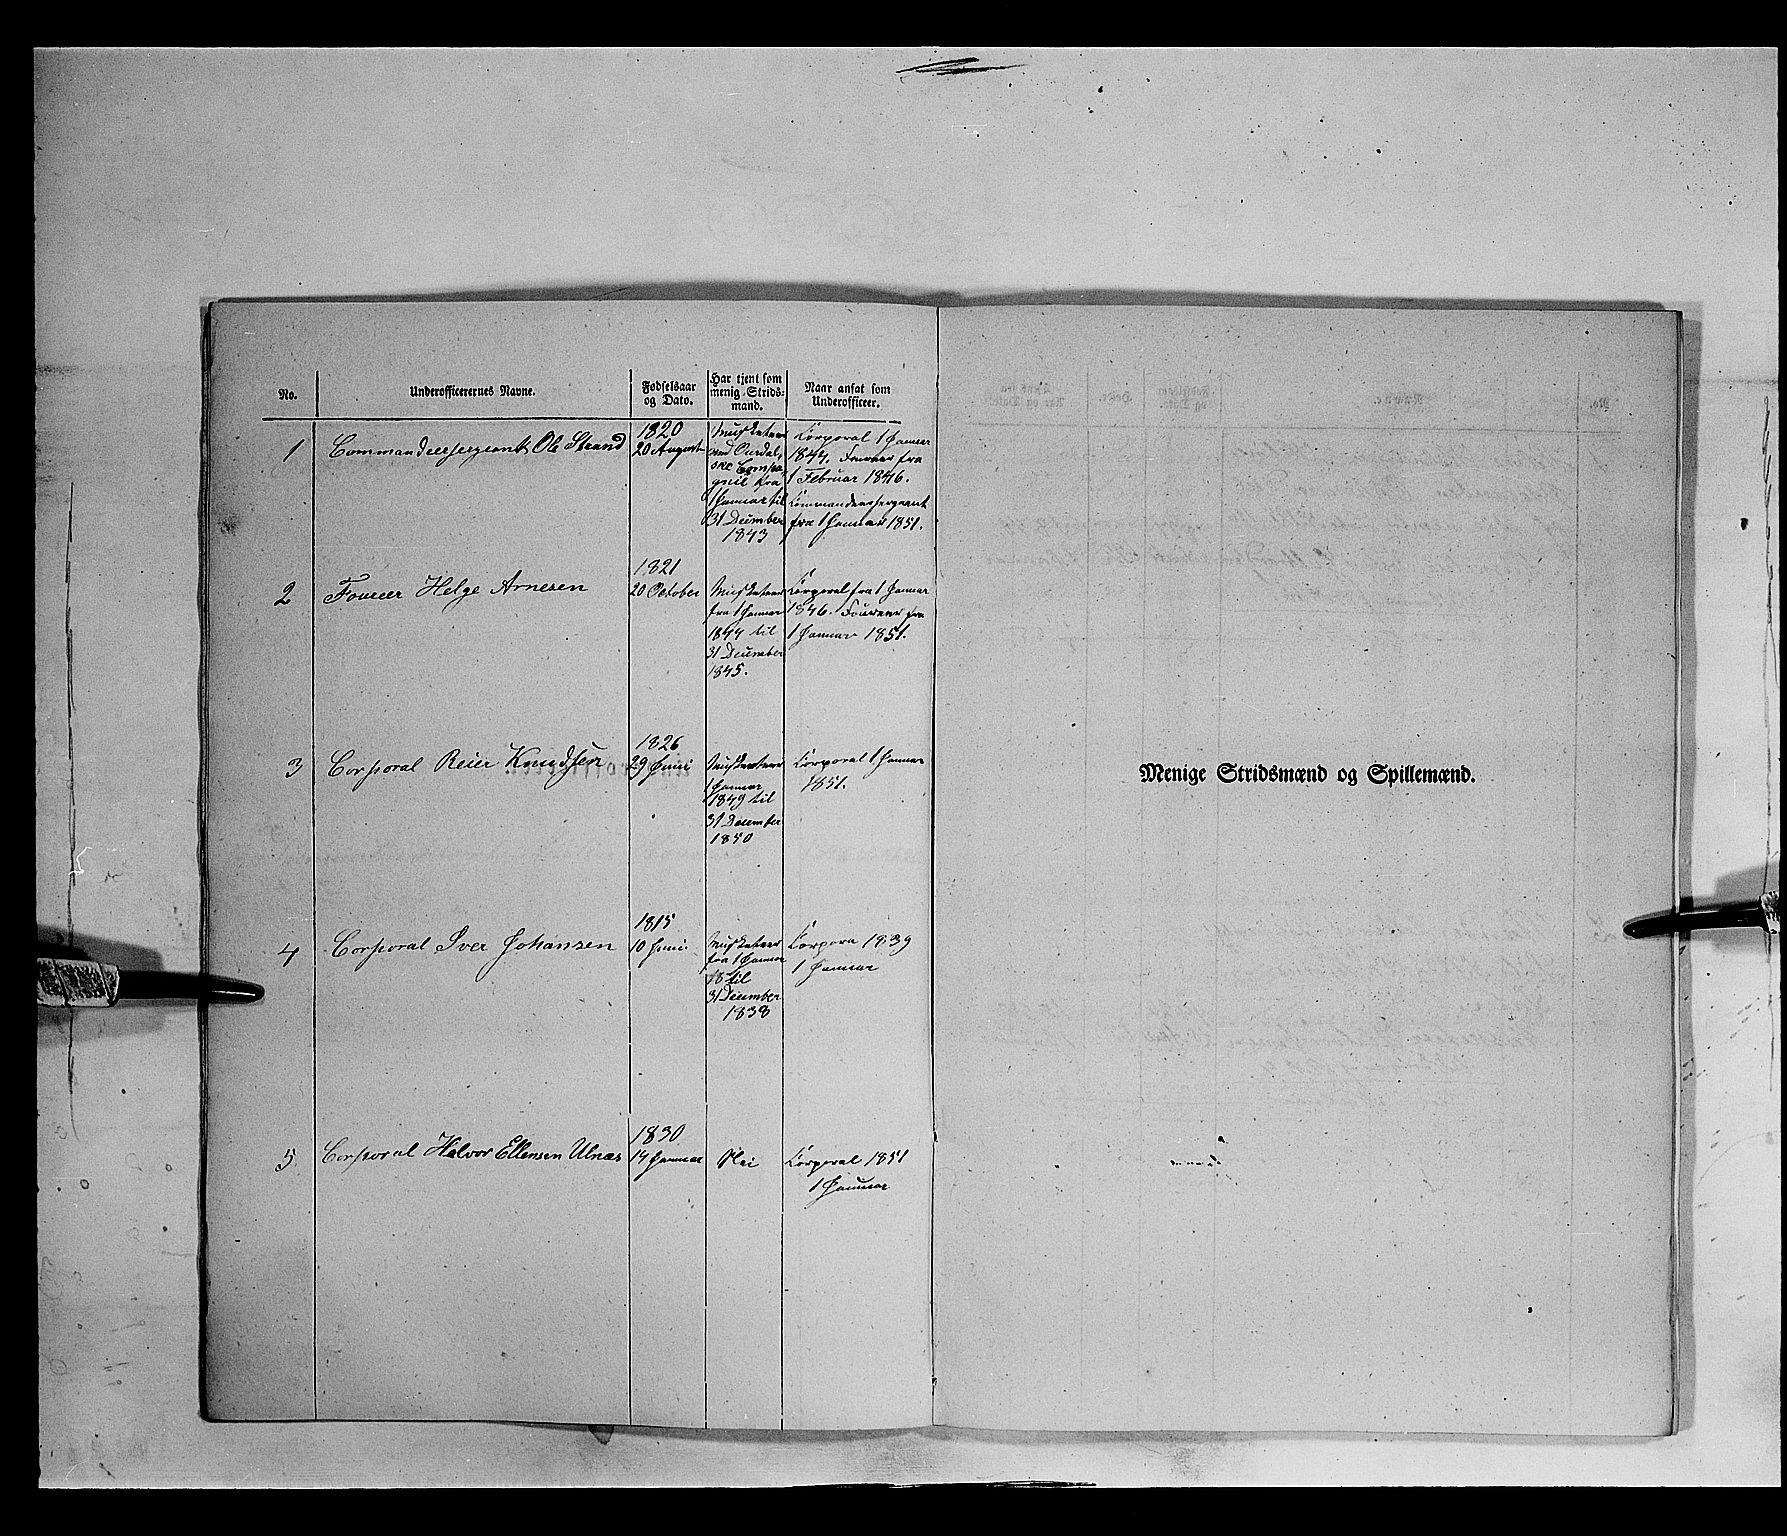 No.
Underofficerernes Navne.
Fødselsaar
og Dato.
Har tjent som
menig Strids-
mand.
Naar ansat som
Underofficeer.
1
Commandeersergeant Ole Strand
1820
20 August
Musketeer
ved Ourdal,
ske Compa,
gnie fra
1 Januar til
31 December
1843
Corporal 1 Januar
1844. Foureer fra
1 Februar 1846.
Commandeersergeant
fra 1 Januar 1851.
2
Foureer Helge Arnesen
1821
20 October
Musketeer
fra 1 Januar
1844 til
31 December
1845.
Corporal fra 1 Januar
1846. Foureer fra
1 Januar 1851.
3
Corporal Reier Knudsen
1826
29 Juni
Musketeer
1 Januar
1849 til
31 December
1850
Corporal 1 Januar
1851.
4
Corporal Iver Johansen
1815
10 Juni
Musketeer
fra 1 Januar
18 til
31 December
1838
Corpora 1839
1 Januar
5
Corporal Halvor Ellensen Ulnæs
1830
14 Januar
Nei
Corporal 1851
1 Januar
Menige Stridsmænd og Spillemænd.